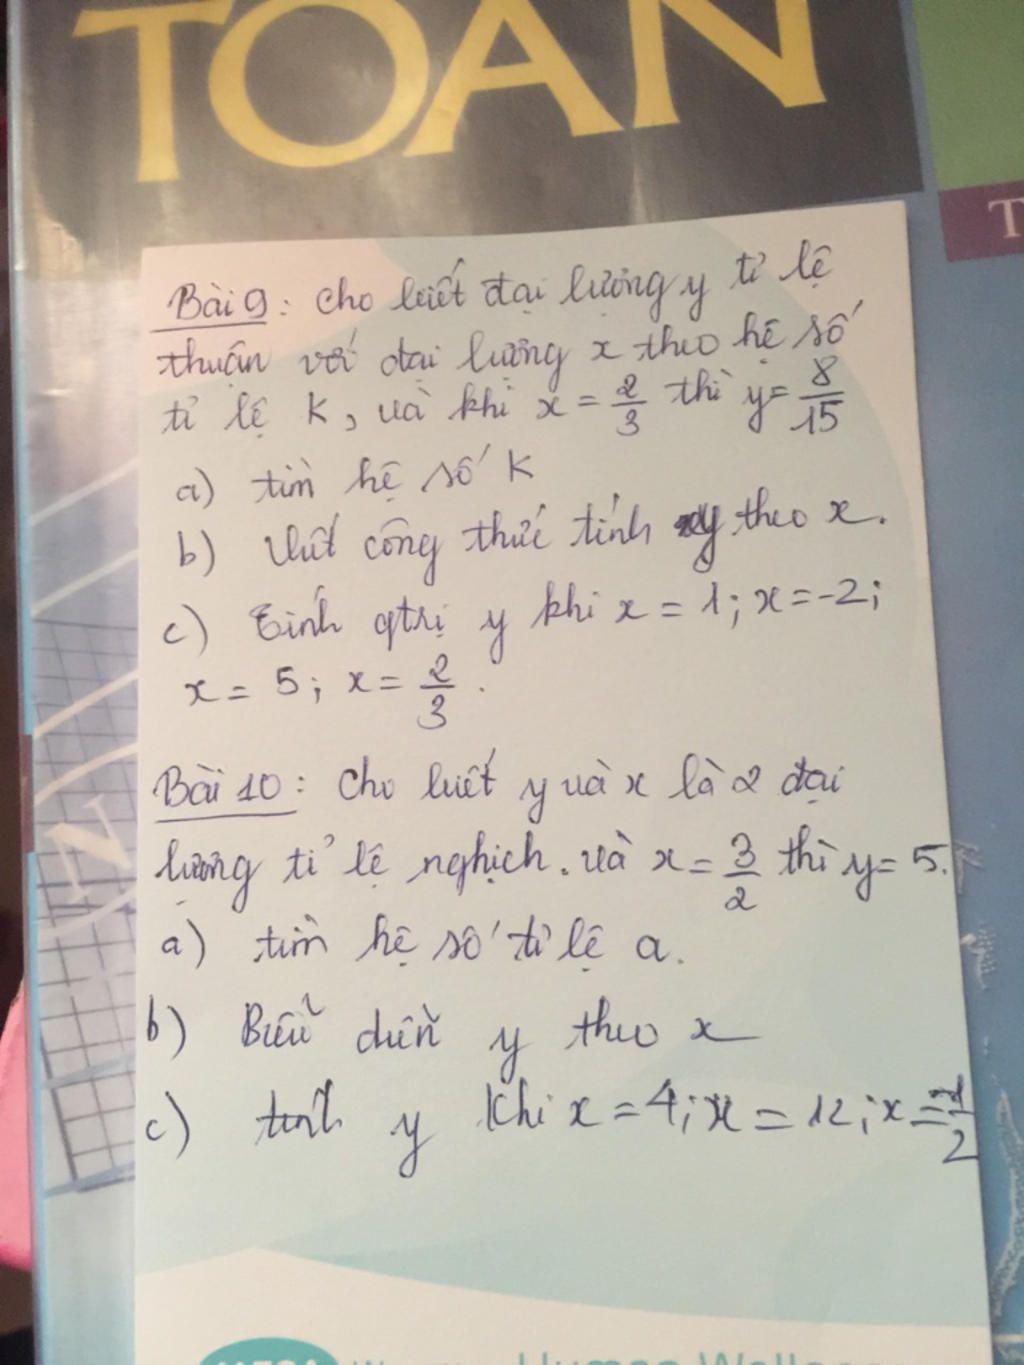 TOAN
T
Bài 9: Cho biết đại lượng y tỉ lệ
thuận với đại lượng x theo hệ số
tỉ lệ K, và khi x = 2/3 thì y = 8/15
a) tìm hệ số K
b) Viết công thức tính y theo x.
c) Tính gtrị y khi x = 1; x = -2;
x = 5; x = 2/3.
Bài 10: Cho biết y và x là 2 đại
lượng tỉ lệ nghịch. và x = 3/2 thì y = 5.
a) tìm hệ số tỉ lệ a.
b) Biểu diễn y theo x
c) tính y khi x = 4; x = 12; x =